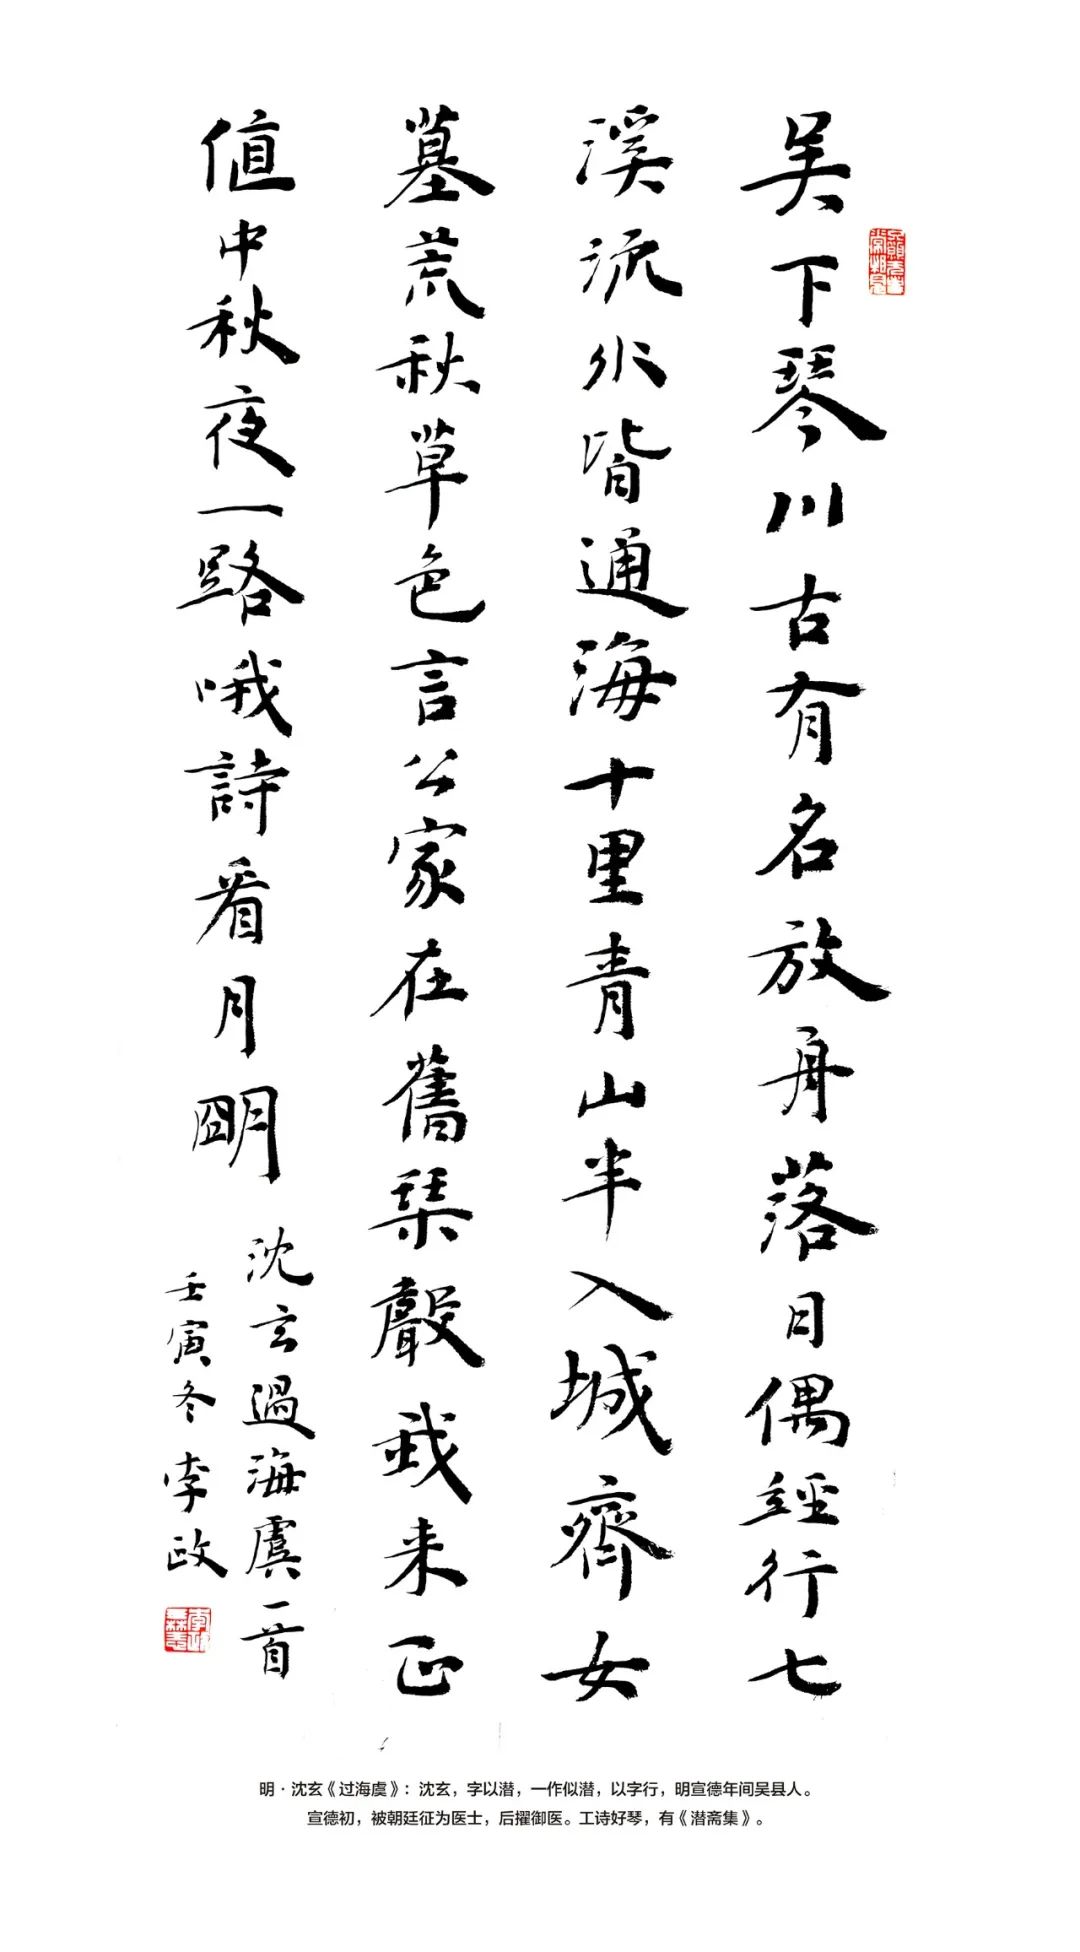 吴下琴川古有名放舟落日偶經行七
溪流水皆通海十里青山半入城齊女
墓荒秋草色言公家在舊琹聲我来正
值中秋夜一路哦詩看月明
沈玄過海虞一首
壬寅冬李政
明·沈玄《过海虞》：沈玄，字以潜，一作似潜，以字行，明宣德年间吴县人。
宣德初，被朝廷征为医士，后擢御医。工诗好琴，有《潜斋集》。